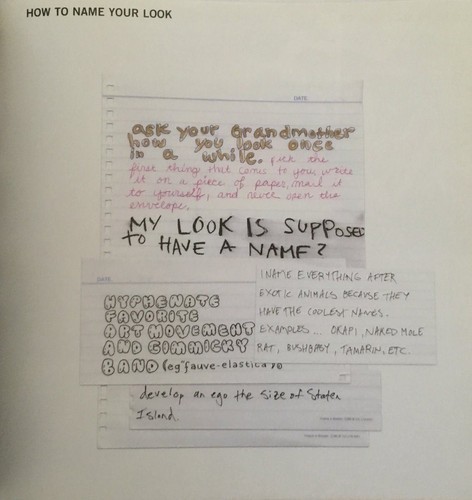 HOW TO NAME YOUR LOOK
DATE
ask your Grandmother
how you look once
in a while. Pick the
first thing that comes to you, write
it on a piece of paper, mail it
to yourself, and never open the
envelope.
MY LOOK IS SUPPOSED
to HAVE A NAME?
DATE
I NAME EVERYTHING AFTER
EXOTIC ANIMALS BECAUSE THEY
HAVE THE COOLEST NAMES.
EXAMPLES... OKAPI, NAKED MOLE
RAT, BUSHBABY, TAMARIN, ETC.
HYPHENATE
FAVORITE
ART MOVEMENT
AND GIMMICKY
BAND (eg "fauve-elastica")
develop an ego the size of Staten
Island.